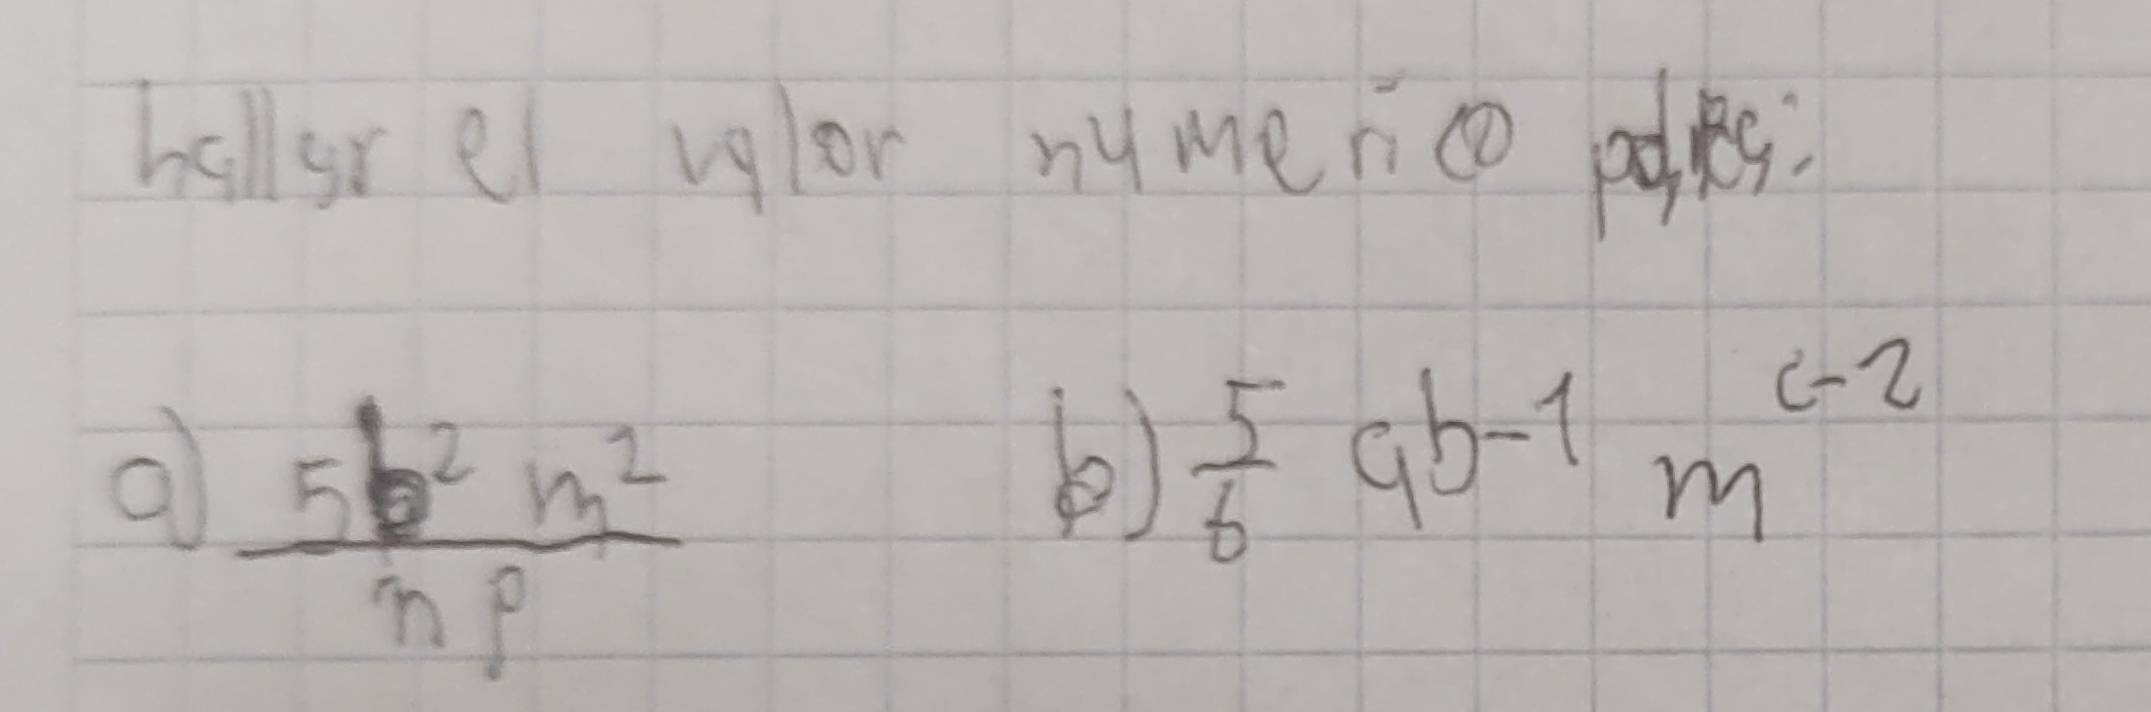 hallar el valor numerico
a) 5b² m² / n p
b) 5/6 ab-1 m^c-2